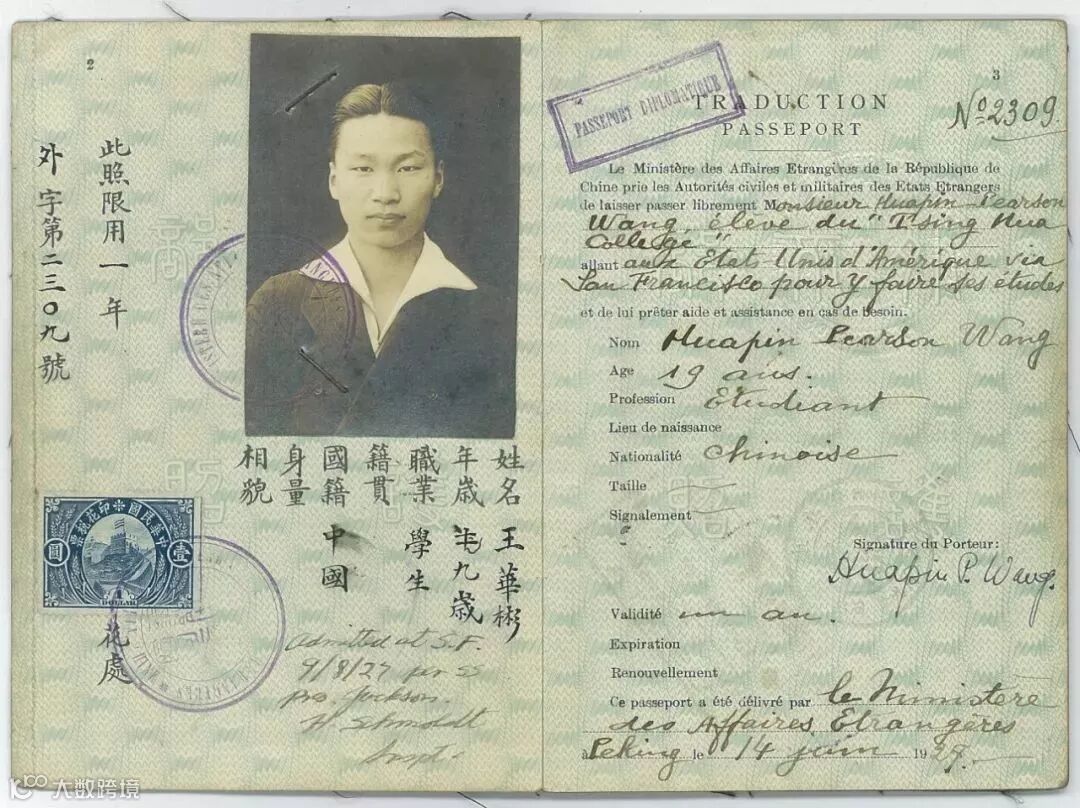 2
此照限用一年
外字第二三〇九號
姓名 王華彬
年歲 九歲
職業 學生
籍貫
國籍 中國
身量
相貌
中華民國印花稅票
壹
圓
1
DOLLAR
花處
admitted at S.F.
9/8/27 per SS
Pres. Jackson.
H Schmoldt
Inspt.
3
PASSEPORT DIPLOMATIQUE
TRADUCTION
PASSEPORT
No 2309
Le Ministère des Affaires Etrangères de la République de
Chine prie les Autorités civiles et militaires des Etats Etrangers
de laisser passer librement Monsieur Huapin Pearson
Wang, élève du "Tsing Hua
College"
allant aux Etat Unis d'Amérique via
San Francisco pour y faire ses études
et de lui prêter aide et assistance en cas de besoin.
Nom Huapin Pearson Wang
Age 19 ans.
Profession Etudiant
Lieu de naissance
Nationalité Chinoise
Taille
Signalement
Signature du Porteur:
Huapin P. Wang.
Validité un an.
Expiration
Renouvellement
Ce passeport a été délivré par le Ministère
des Affaires Etrangères
à Peking le 14 juin 1927.
大数跨境